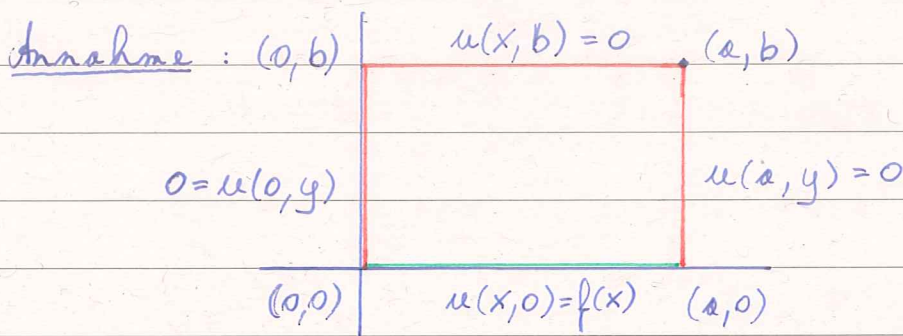 Annahme : (0,b) u(x,b) = 0 (a,b)
0 = u(0,y) u(a,y) = 0
(0,0) u(x,0) = f(x) (a,0)